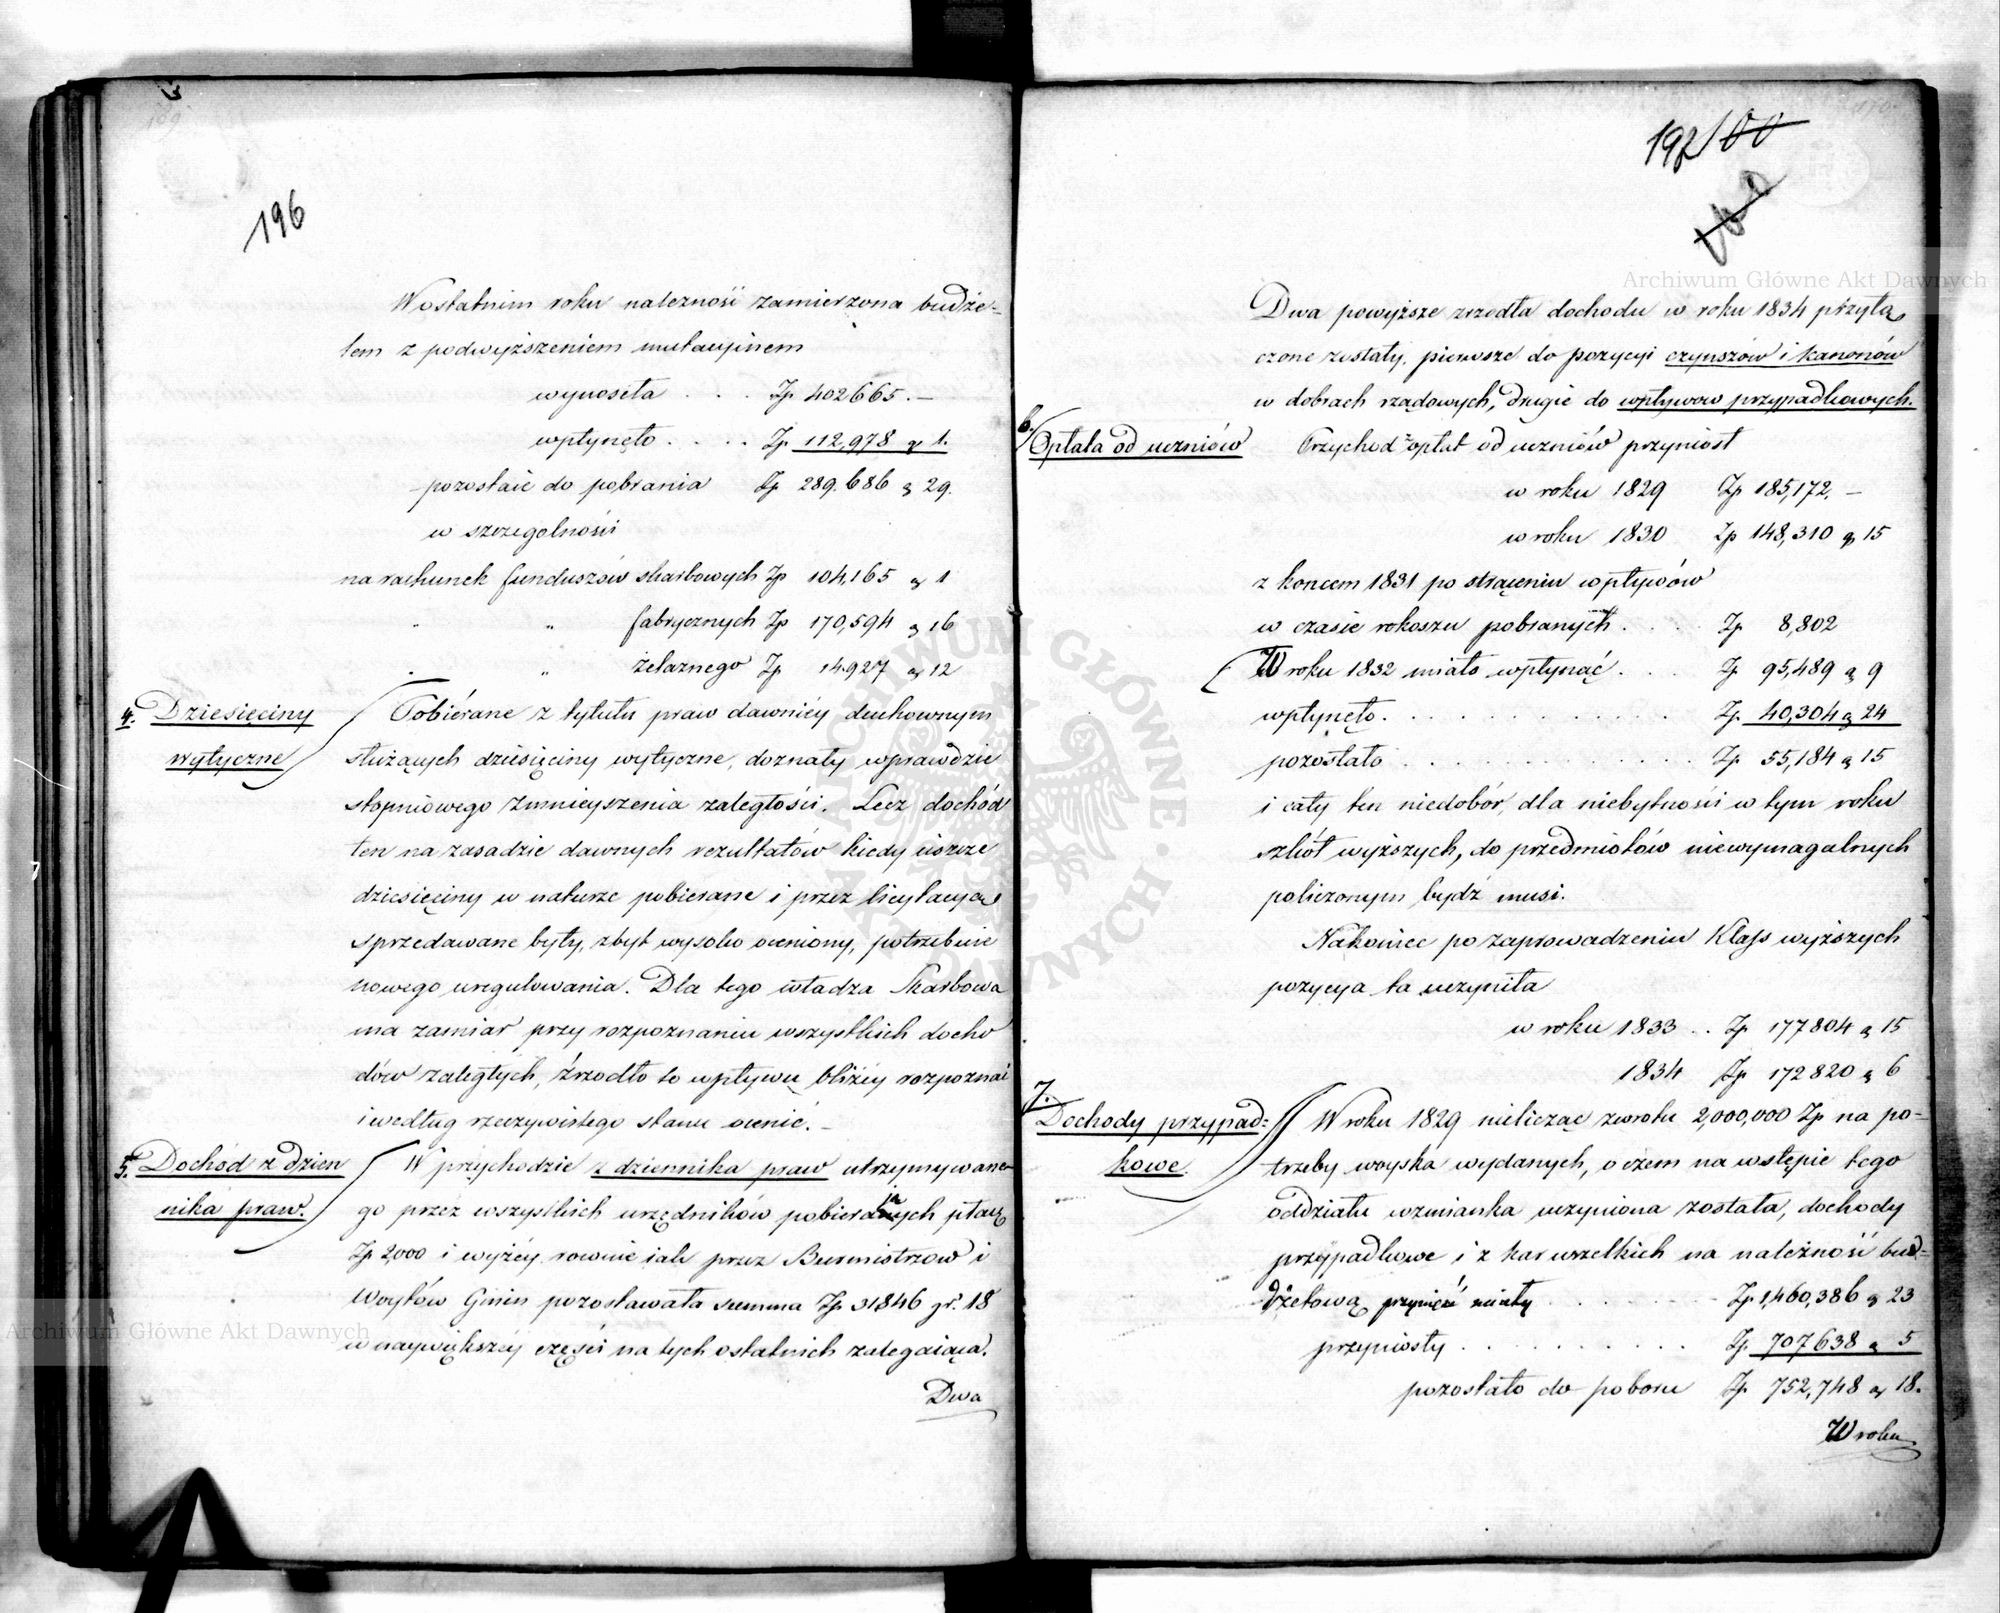 196
W ostatnim roku należność zamierzona budże-
tem z podwyższeniem mutacyinem
wynosiła . . . Zp. 402665. —
wpłynęło . . . . Zp. 112,978 g 1.
pozostaie do pobrania Zp. 289.686 g 29.
w szczegolności
na rachunek funduszów skarbowych Zp 104,165 g 1
" " fabrycznych Zp 170,594 g 16
" " żelaznego Zp 14.927 g 12
4. Dziesięciny
wytyczne
Pobiérane z tytułu praw dawniey duchownym
służących dziesięciny wytyczne, doznały wprawdzie
stopniowego zmnieyszenia zaległości. Lecz dochód
ten na zasadzie dawnych rezultatów kiedy ieszcze
dziesięciny w naturze pobierane i przez licytacye
sprzedawane były, zbyt wysoko oceniony, potrzebuie
nowego uregulowania. Dla tego władza Skarbowa
ma zamiar przy rozpoznaniu wszystkich docho
dów zaległych, źrzodło to wpływu bliżéy rozpoznać
i według rzeczywistego stanu ocenić. —
5. Dochód z dzien
nika praw.
W przychodzie z dziennika praw utrzymywane-
go przez wszystkich urzędników pobieraiących płacę
Zp 2,000 i wyżéy rownie iak przez Burmistrzow i
Woytów Gmin pozostawała summa Zp 31846 gr. 18
w naywiększéy części na tych ostatnich zalegaiąca.
Dwa
197 100
Dwa powyższe zrzodła dochodu w roku 1834 przyłą
czone zostały, pierwsze do pozycyi czynszów i kanonów
w dobrach rządowych, drugie do wpływow przypadkowych.
6. Opłata od uczniów
Przychod z opłat od uczniów przyniosł
w roku 1829 Zp 185,172. —
w roku 1830 Zp 148,310 g 15
z koncem 1831 po strąceniu wpływów
w czasie rokoszu pobranych . . . Zp 8,802
W roku 1832 miało wpłynąć . . . Zp 95,489 g 9
wpłynęło. . . . . . . . . Zp. 40,304 g 24
pozostało . . . . . . . . . Zp 55,184 g 15
i cały ten niedobór, dla niebytności w tym roku
szkół wyższych, do przedmiotów niewymagalnych
policzonym bydź musi.
Nakoniec po zaprowadzeniu Klass wyższych
pozycya ta uczyniła
w roku 1833 . . Zp 177804 g 15
1834 Zp 172820 g 6
7.
Dochody przypad-
kowe.
W roku 1829 nielicząc zwrotu 2,000,000 Zp na po-
trzeby woyska wydanych, o czem na wstępie tego
oddziału wzmianka uczyniona została, dochody
przypadkowe i z kar wszelkich na należność bud-
dżetową przynieść miały . . . . . Zp 1,460,386 g 23
przyniosły . . . . . . . . Zp 707638 g 5
pozostało do poboru Zp 752,748 g 18.
W roku
Archiwum Główne Akt Dawnych
Archiwum Główne Akt Dawnych
ARCHIWUM GŁÓWNE AKT DAWNYCH